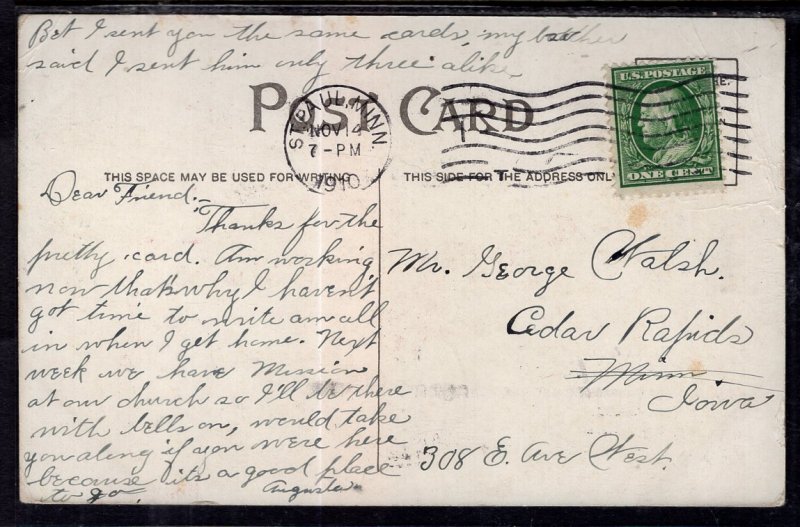 Bet I sent you the same cards, my brother
said I sent him only three alike.
POST CARD
ST. PAUL, MINN
NOV 14
7-PM
1910
U.S. POSTAGE
ONE CENT
THIS SPACE MAY BE USED FOR WRITING
THIS SIDE FOR THE ADDRESS ONLY
Dear Friend:-
Thanks for the
pretty card. Am working
now that's why I haven't
got time to write am all
in when I get home. Next
week we have Mission
at our church so I'll be there
with bells on, would take
you along if you were here
because its a good place
to go.
Augusta
Mr. George Walsh.
Cedar Rapids
Minn
Iowa
308 E. Ave West.